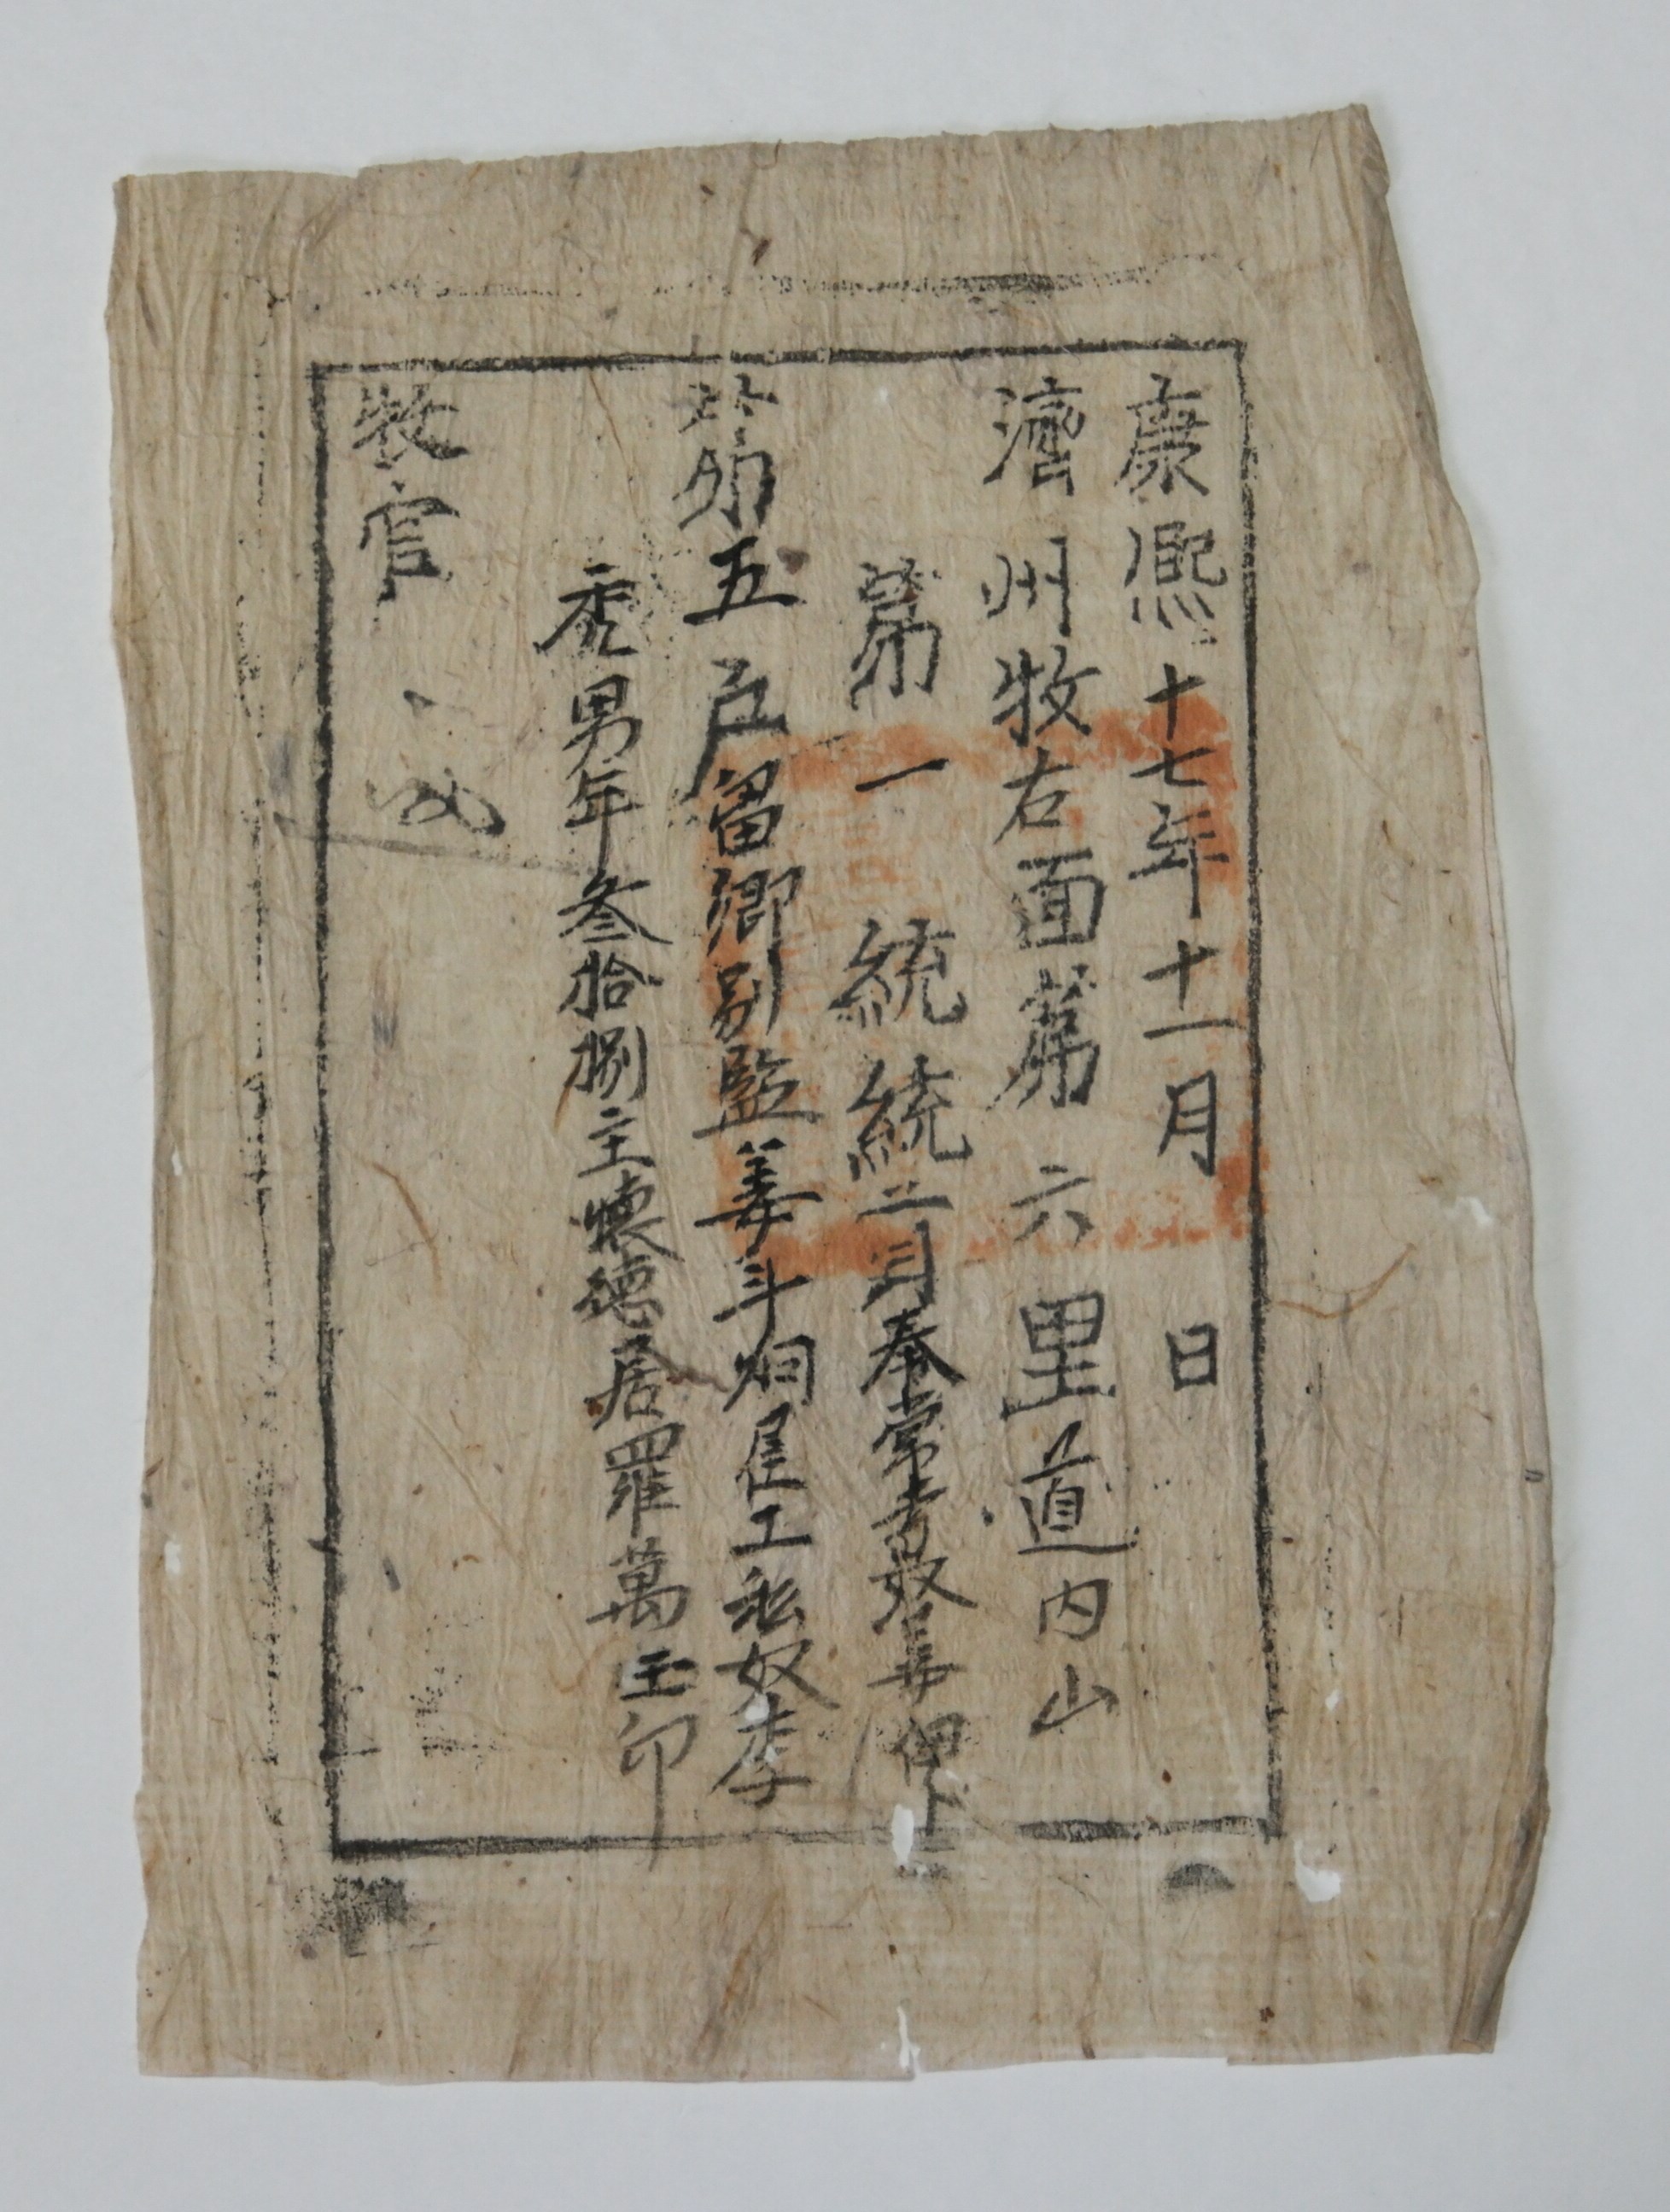 康熙十七年十一月 日
濟州牧右面第六里道內山
第一統統首奉常寺奴
第五戶留鄕別監姜斗炯雇工私奴李
禿男年叁拾捌主懷德居羅萬玉印
牧官